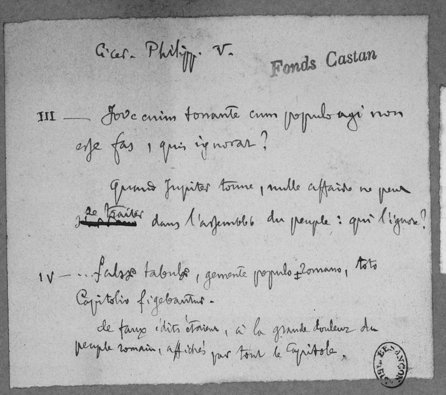 Cicer. Philipp. V.
Fonds Castan
III — Jove enim tonante cum populo agi non
esse fas, quis ignorat?
Quand Jupiter tonne, nulle affaire ne peut
se traiter dans l'assemblée du peuple : qui l'ignore?
IV — ... falsæ tabulæ, gemente populo Romano, toto
Capitolio figebantur.
de faux édits étaient, à la grande douleur du
peuple romain, affichés par tout le Capitole.